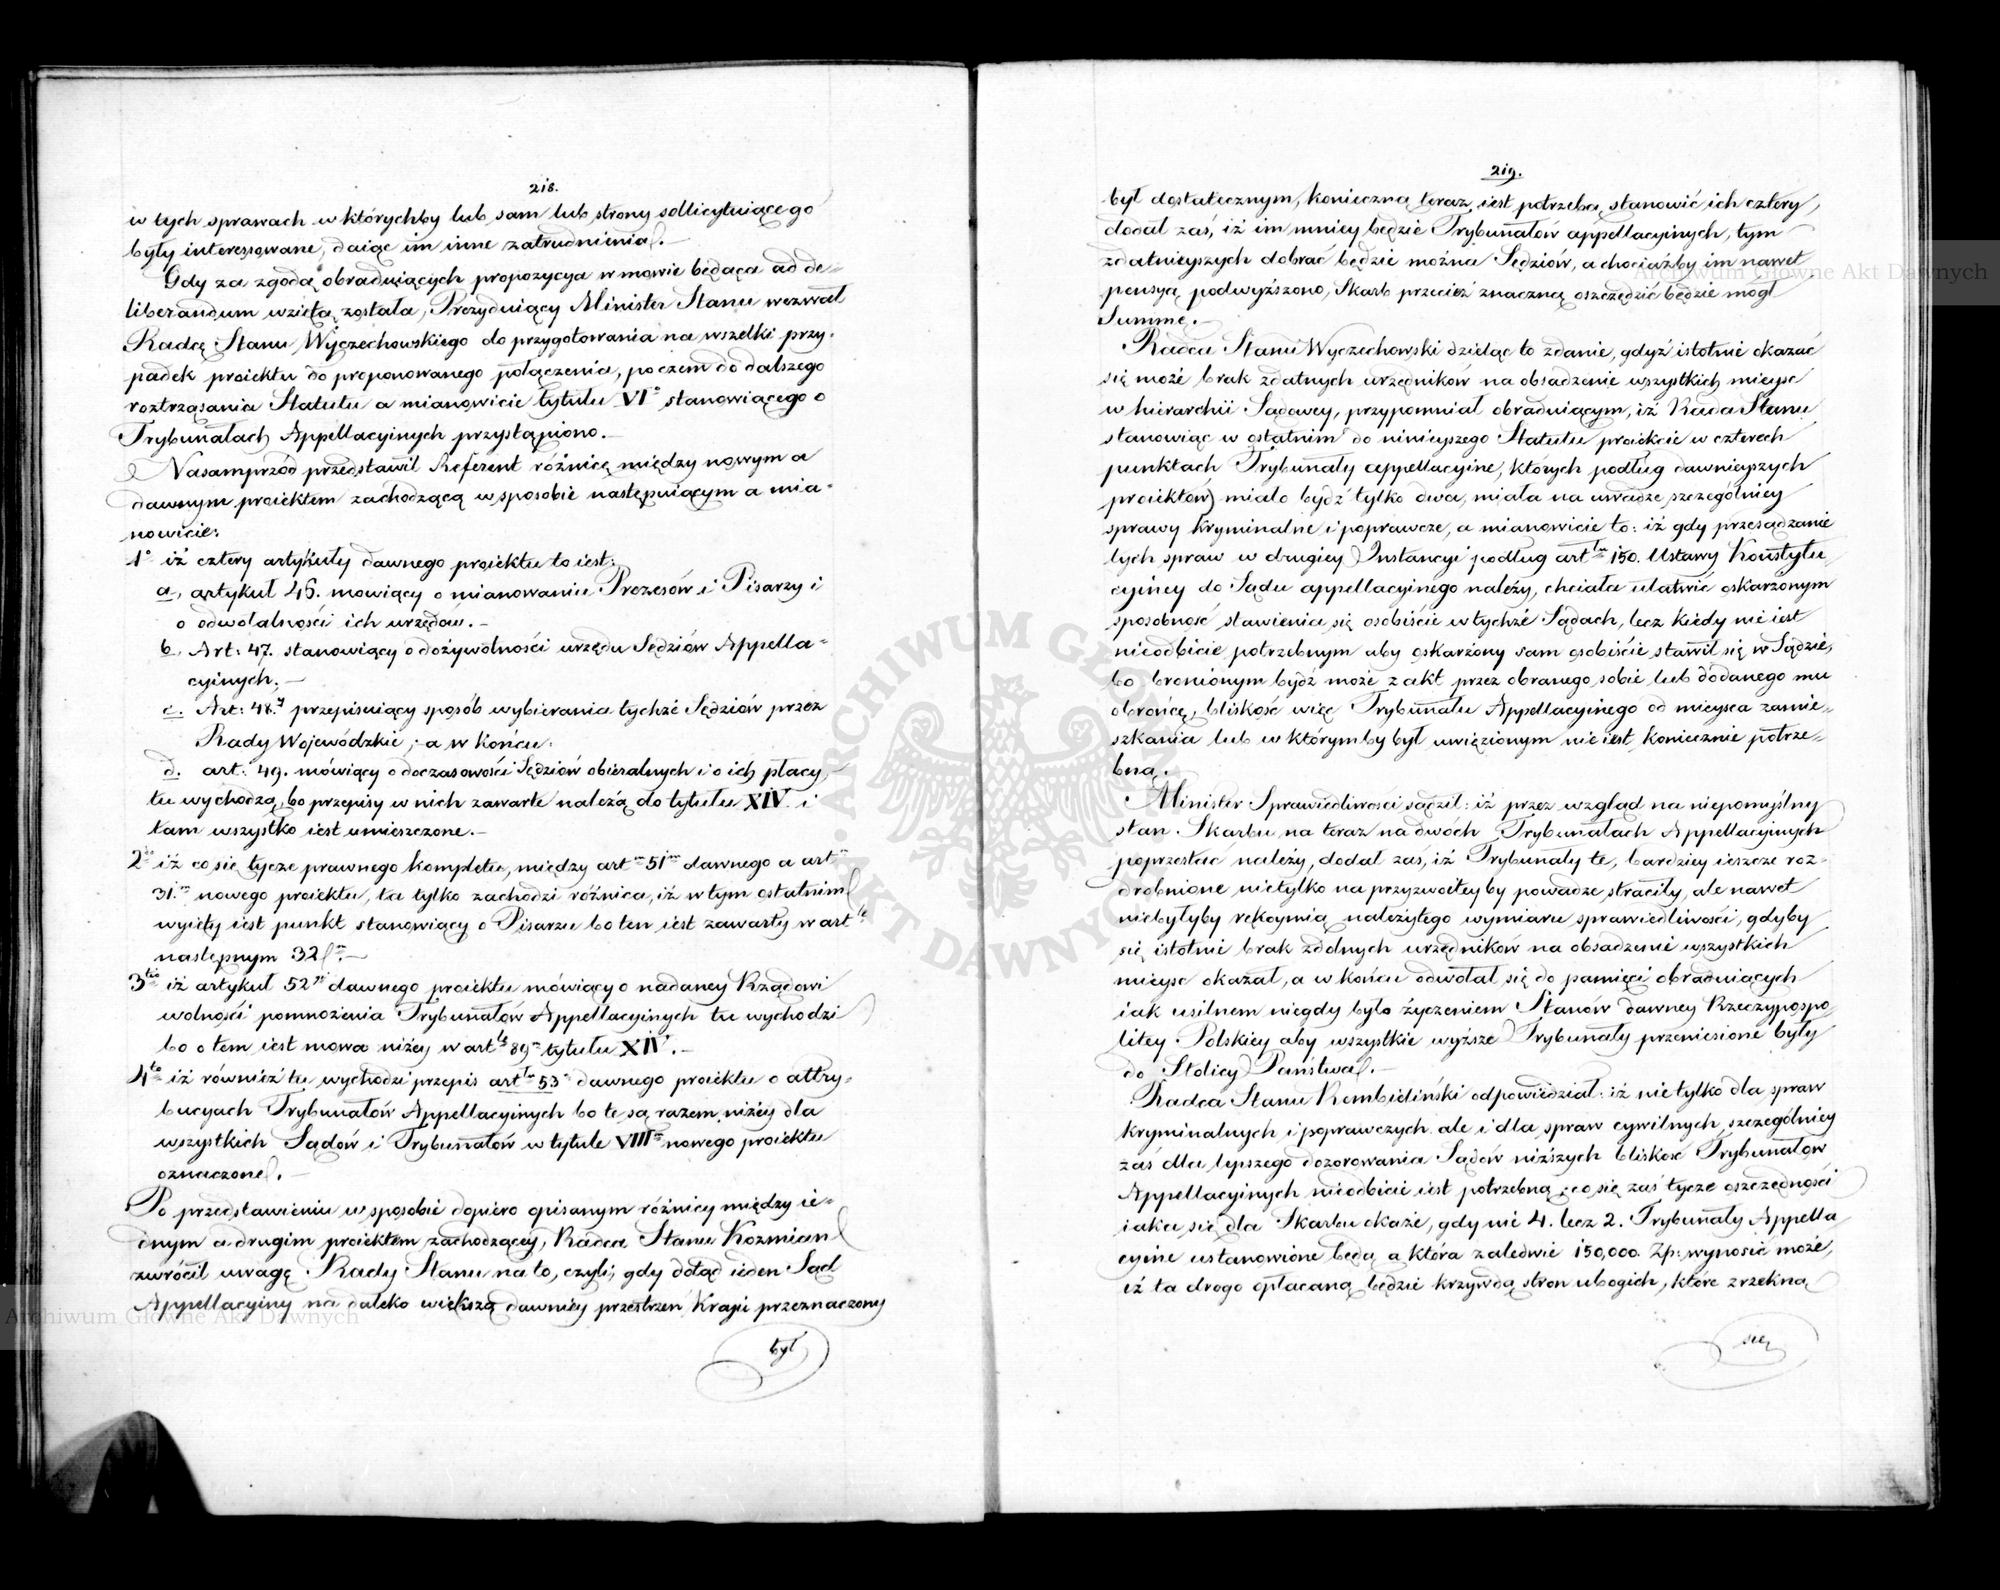 218.
w tych sprawach w którychby lub sam lub strony sollicytuiącego
były interessowane, daiąc im inne zatrudnienia.—
Gdy za zgodą obraduiących propozycya w mowie będąca ad de=
liberandum wzięta została, Prezyduiący Minister Stanu wezwał
Radcę Stanu Wyczechowskiego do przygotowania na wszelki przy=
padek proiektu do proponowanego połączenia, poczem do dalszego
roztrząsania Statutu a mianowicie tytułu VIº stanowiącego o
Trybunałach Appellacyinych przystąpiono.—
Nasamprzód przedstawił Referent różnicę między nowym a
dawnym proiektem zachodzącą w sposobie następuiącym a mia=
nowicie:
1º iż cztery artykuły dawnego proiektu to iest:
a, artykuł 46. mowiący o mianowaniu Prezesów i Pisarzy i
o odwołalności ich urzędów.—
b, Art: 47. stanowiący o dożywotności urzędu Sędziów Appella=
cyinych.—
c. Art: 48.y przepisuiący sposób wybierania tychże Sędziów przez
Rady Wojewódzkie; a w końcu:
d. art: 49. mówiący o doczasowości Sędziów obieralnych i o ich płacy,
tu wychodzą, bo przepisy w nich zawarte należą do tytułu XIV. i
tam wszystko iest umieszczone.—
2do iż co się tycze prawnego kompletu, między artm 51m dawnego a artm
31.m nowego proiektu, ta tylko zachodzi różnica, iż w tym ostatnim
wyięty iest punkt stanowiący o Pisarzu bo ten iest zawarty w artle
następnym 32m.—
3tio iż artykuł 52gi dawnego proiektu mówiący o nadaney Rządowi
wolności pomnożenia Trybunałów Appellacyinych tu wychodzi
bo o tem iest mowa niżey w artle 89m tytułu XIV.—
4to iż również tu wychodzi przepis artlu 53º dawnego proiektu o attry=
bucyach Trybunałów Appellacyinych bo te są razem niżey dla
wszystkich Sądów i Trybunałów w tytule VIIIm nowego proiektu
oznaczone.—
Po przedstawieniu w sposobie dopiero opisanym różnicy między ie=
dnym a drugim proiektem zachodzącey, Radca Stanu Kozmian
zwrócił uwagę Rady Stanu na to, czyli, gdy dotąd ieden Sąd
Appellacyiny na daleko większą dawniey przestrzeń Kraju przeznaczony
był
219.
był dostatecznym, konieczną teraz iest potrzebą stanowić ich cztery,
dodał zaś, iż im mniey będzie Trybunałow appellacyinych, tym
zdatnieyszych dobrać będzie można Sędziów, a chociażby im nawet
pensyą podwyższono, Skarb przecież znaczną oszczędzić będzie mógł
Summę.—
Radca Stanu Wyczechowski dzieląc to zdanie, gdyż istotnie okazać
się może brak zdatnych urzędników na obsadzenie wszystkich mieysc
w hierarchii Sądowey, przypomniał obraduiącym, iż Rada Stanu
stanowiąc w ostatnim do ninieyszego Statutu proiekcie w czterech
punktach Trybunały appellacyine, których podług dawnieyszych
proiektów miało bydź tylko dwa, miała na uwadze szczególniey
sprawy kryminalne i poprawcze, a mianowicie to: iż gdy przesądzanie
tych spraw w drugiey Instancyi podług artlu 150. Ustawy Konstytu
cyiney do Sądu appellacyinego należy, chciała ułatwić oskarżonym
sposobność stawienia się osobiście w tychże Sądach, lecz kiedy nie iest
nieodbicie potrzebnym aby oskarżony sam osobiście stawił się w Sądzie,
bo bronionym bydź może z akt przez obranego sobie lub dodanego mu
obrońcę, bliskość więc Trybunału Appellacyinego od mieysca zamie=
szkania lub w którymby był uwięzionym nie iest koniecznie potrze=
bną.
Minister Sprawiedliwości sądził: iż przez wzgląd na niepomyślny
stan Skarbu na teraz na dwóch Trybunałach Appellacyinych
poprzestać należy, dodał zaś, iż Trybunały te, bardziey ieszcze roz=
drobnione nietylko na przyzwoitey by powadze straciły, ale nawet
niebyłyby rękoymią należytego wymiaru sprawiedliwości, gdyby
się istotnie brak zdolnych urzędników na obsadzenie wszystkich
mieysc okazał, a w końcu odwołał się do pamięci obraduiących
iak usilnem niegdy było życzeniem Stanów dawney Rzeczypospo=
litey Polskiey aby wszystkie wyższe Trybunały przeniesione były
do Stolicy Państwa.—
Radca Stanu Rembieliński odpowiedział: iż nie tylko dla spraw
kryminalnych i poprawczych ale i dla spraw cywilnych, szczególniey
zaś dla lepszego dozorowania Sądów niższych bliskość Trybunałow
Appellacyinych nieodbicie iest potrzebną; co się zaś tycze oszczędności
iaka się dla Skarbu okaże, gdy nie 4. lecz 2. Trybunały Appella
cyine ustanowione będą a która zaledwie 150,000. Zp: wynosić może,
iż ta drogo opłacaną będzie krzywdą stron ubogich, które zrzekną
się
Archiwum Główne Akt Dawnych
Archiwum Główne Akt Dawnych
ARCHIWUM GŁÓWNE AKT DAWNYCH